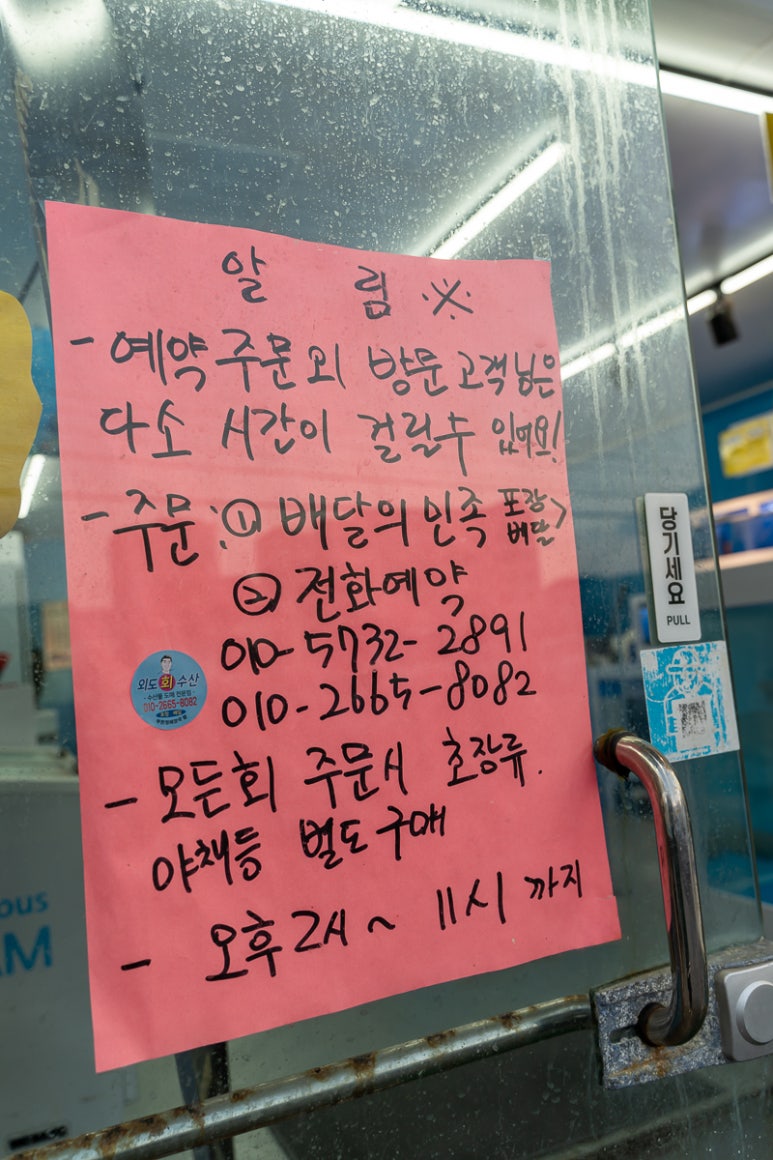 알 림 ※
- 예약 주문 외 방문 고객님은
다소 시간이 걸릴수 있어요!
- 주문 : ① 배달의 민족 포장 >
배달
② 전화예약
010-5732-2891
010-2665-8082
외도 회 수산
- 수산물 도매 전문점 -
010-2665-8082
- 모든회 주문시 초장류.
야채등 별도 구매
- 오후 2시 ~ 11시 까지
당기세요
PULL
ous
AM